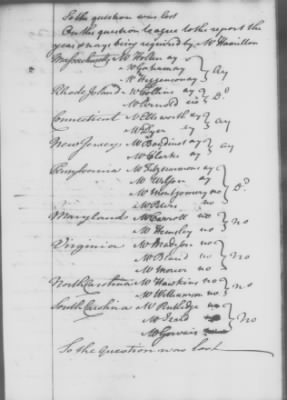 So the question was lost
On the question to agree to the report the
yeas & nays being required by Mr Hamilton
Massachusetts Mr Holten ay
Mr Gorham ay
Mr Higginson ay } ay
Rhode Island Mr Collins ay
Mr Arnold } Do
Connecticut Mr Ellsworth ay
Mr Dyer ay } ay
New Jersey Mr Boudinot ay
Mr Clarke ay } ay
Pensylvania Mr Fitzsimmons ay
Mr Wilson ay
Mr Montgomery no
Mr Peters no } Do
Maryland Mr Carroll no
Mr Hemsley no } no
Virginia Mr Madison no
Mr Bland no
Mr Mercer no } no
North Carolina Mr Hawkins no
Mr Williamson no } no
South Carolina Mr Rutledge no
Mr Izard no
Mr Gervais no } no
So the question was lost